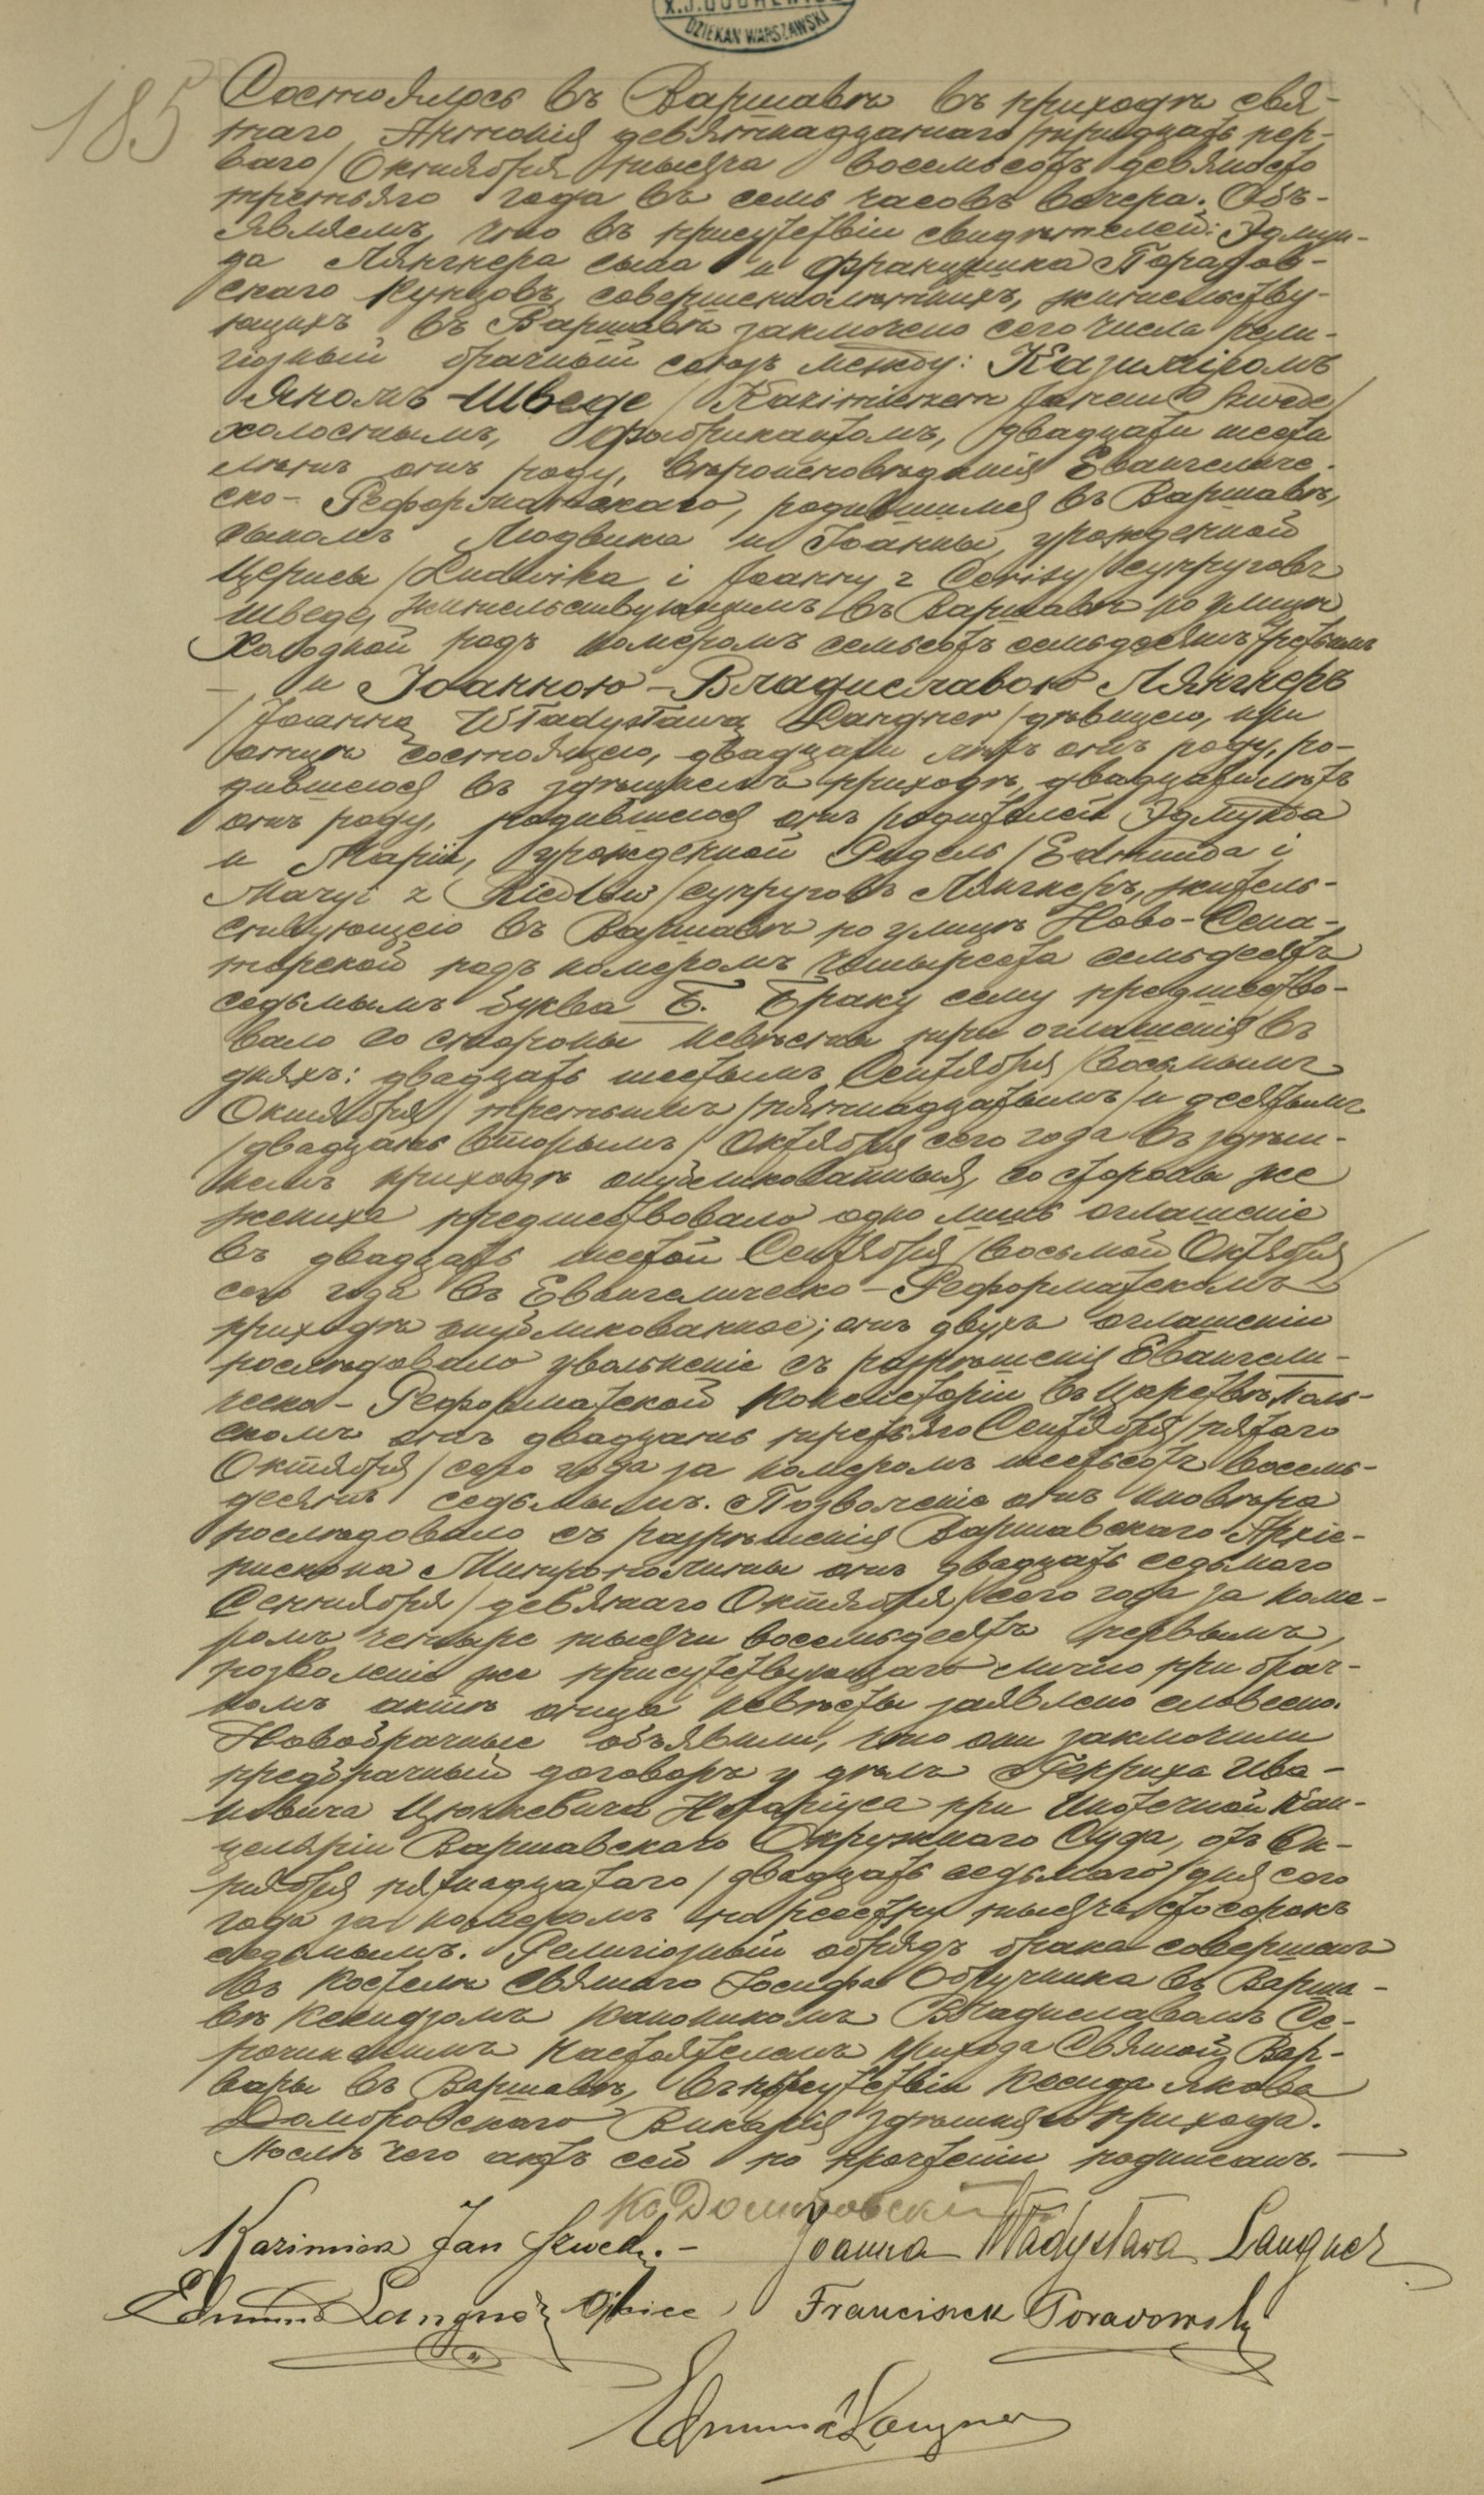 DZIEKAN WARSZAWSKI
185
Состоялось въ Варшавѣ въ приходѣ свя-
таго Антонія девятнадцатаго /тридцать пер-
ваго/ Октября тысяча восемьсотъ девяносто
третьяго года въ семь часовъ вечера. Объ-
являемъ, что въ присутствіи свидѣтелей: Эдмун-
да Лянгнера сына и Францишка Торадов-
скаго купцовъ, совершеннолѣтнихъ, жительству-
ющихъ въ Варшавѣ заключено сего числа рели-
гіозный брачный союзъ между: Казиміромъ
Яномъ Шведе /Kazimierzem Janem Szwede/
холостымъ, фабрикантомъ, двадцати шести
лѣтъ отъ роду, вѣроисповѣданія Евангеличе-
ско-Реформатскаго, родившимся въ Варшавѣ,
сыномъ Людвика и Іоанны, урожденной
Церисы /Ludwika i Joanny z Cerisy/ супруговъ
Шведе, жительствующимъ въ Варшавѣ по улицѣ
Холодной подъ номеромъ семьсотъ семьдесятъ третьимъ
— и Іоанною-Владиславою Лянгнеръ
/Joanną Władysławą Langner/ дѣвицею, при
отцѣ состоящею, двадцати лѣтъ отъ роду, ро-
дившеюся въ здѣшнемъ приходѣ, двадцати лѣтъ
отъ роду, родившеюся отъ родителей Эдмунда
и Маріи, урожденной Ридель /Edmunda i
Maryi z Riedlów/ супруговъ Лянгнеръ, житель-
ствующею въ Варшавѣ по улицѣ Ново-Сена-
торской подъ номеромъ четыреста семьдесятъ
седьмымъ буква Б. Браку сему предшество-
вало со стороны невѣсты три оглашенія въ
дняхъ: двадцать шестымъ Сентября /восьмымъ
Октября/ третьимъ /пятнадцатымъ/ и десятымъ
/двадцать вторымъ/ Октября сего года въ здѣш-
немъ приходѣ опубликованныя, со стороны же
жениха предшествовало одно лишь оглашеніе
въ двадцать шестой Сентября /восьмой Октября
сего года въ Евангелическо-Реформатскомъ
приходѣ опубликованное; отъ двухъ оглашеній
послѣдовало увольненіе съ разрѣшенія Евангели-
ческо-Реформатской Консисторіи въ Царствѣ Поль-
скомъ отъ двадцать третьяго Сентября /пятаго
Октября/ сего года за номеромъ шестьсотъ восемь-
десятъ седьмымъ. Позволеніе отъ иновѣра
послѣдовало съ разрѣшенія Варшавскаго Архіе-
пископа Митрополиты отъ двадцать седьмаго
Сентября /девятаго Октября/ сего года за номе-
ромъ четыре тысячи восемьдесятъ первымъ,
позволеніе же присутствующаго лично при брач-
номъ актѣ отца невѣсты заявлено словесно.
Новобрачные объявили, что они заключили
предбрачный договоръ у дѣлъ Генриха Ива-
новича Нотаріуса при Ипотечной Кан-
целяріи Варшавскаго Окружнаго Суда, отъ Ок-
тября пятнадцатаго /двадцать седьмаго/ дня сего
года за номеромъ по реестру тысяча сто сорокъ
седьмымъ. Религіозный обрядъ брака совершенъ
въ костелѣ Святаго Іосифа Обручника въ Варша-
вѣ Ксендзомъ Каноникомъ Владиславомъ Се-
рочинскимъ Настоятелемъ прихода Святой Вар-
вары въ Варшавѣ, въ присутствіи Ксендза Якова
Домбровскаго Викарія здѣшняго прихода.
Послѣ чего актъ сей по прочтеніи подписанъ. —
Кс Домбровскій
Kazimierz Jan Szwede. — Joanna Władysława Langner
Edmund Langner Ojciec Franciszek Toradowski
Edmund Langner